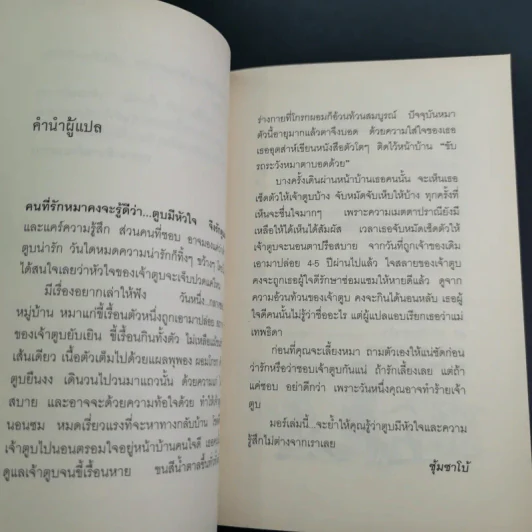 คำนำผู้แปล
คนที่รักหมาคงจะรู้ดีว่า...ตูบมีหัวใจ
และแคร์ความรู้สึก ส่วนคนที่ชอบ
ตูบน่ารัก วันใดหมดความน่ารักก็ทิ้งๆ ขว้างๆ
ได้สนใจเลยว่าหัวใจของเจ้าตูบจะเจ็บปวด
มีเรื่องอยากเล่าให้ฟัง วันหนึ่ง
หมู่บ้าน หมาแก่ขี้เรื้อนตัวหนึ่งถูกเอามาปล่อย
ของเจ้าตูบยับเยิน ขี้เรื้อนกินทั้งตัว ไม่เหลือ
เส้นเดียว เนื้อตัวเต็มไปด้วยแผลพุพอง
ตูบยืนงง เดินวนไปวนมาแถวนั้น ด้วยความ
สบาย และอาจจะด้วยความท้อใจด้วย
นอนซม หมดเรี่ยวแรงที่จะหาทางกลับบ้าน
เจ้าตูบไปนอนตรอมใจอยู่หน้าบ้านคนใจดี
ดูแลเจ้าตูบจนขี้เรื้อนหาย ขนสีน้ำตาลขึ้น
ร่างกายที่โกรกผอมก็อ้วนท้วนสมบูรณ์ ปัจจุบันหมา
ตัวนี้อายุมากแล้วตาจึงบอด ด้วยความใส่ใจของเธอ
เธออุตส่าห์เขียนหนังสือตัวโตๆ ติดไว้หน้าบ้าน “ขับ
รถระวังหมาตาบอดด้วย”
บางครั้งเดินผ่านหน้าบ้านเธอคนนั้น จะเห็นเธอ
เช็ดตัวให้เจ้าตูบบ้าง จับหมัดจับเห็บให้บ้าง ทุกครั้งที่
เห็นจะชื่นใจมากๆ เพราะความเมตตาปราณียังมี
เหลือให้ได้เห็นได้สัมผัส เวลาเธอจับหมัดเช็ดตัวให้
เจ้าตูบจะนอนตาปรือสบาย จากวันที่ถูกเจ้าของเดิม
เอามาปล่อย 4-5 ปีผ่านไปแล้ว ใจสลายของเจ้าตูบ
คงจะถูกเธอผู้ใจดีรักษาซ่อมแซมให้หายดีแล้ว ดูจาก
ความอ้วนท้วนของเจ้าตูบ คงจะกินได้นอนหลับ เธอผู้
ใจดีคนนั้นไม่รู้ว่าชื่ออะไร แต่ผู้แปลแอบเรียกเธอว่าแม่
เทพธิดา
ก่อนที่คุณจะเลี้ยงหมา ถามตัวเองให้แน่ชัดก่อน
ว่ารักหรือว่าชอบเจ้าตูบกันแน่ ถ้ารักเลี้ยงเลย แต่ถ้า
แค่ชอบ อย่าดีกว่า เพราะวันหนึ่งคุณอาจทำร้ายเจ้า
ตูบ
มอร์เล่มนี้...จะย้ำให้คุณรู้ว่าตูบมีหัวใจและความ
รู้สึกไม่ต่างจากเราเลย
ซุ้มซาโบ้